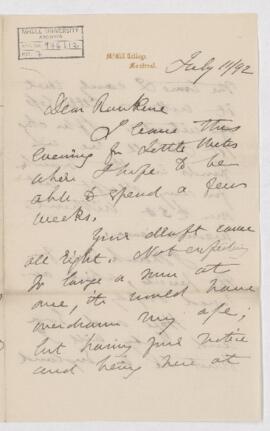 McGILL UNIVERSITY
ARCHIVES
McGill College,
Montreal.
July 11/92
Dear Rankine
I leave this
evening for Little Metis
where I hope to be
able to spend a few
weeks.
Your draft came
all right. Not expecting
so large a sum at
once, it would have
overdrawn my a/c;
but having your notice
and being here at